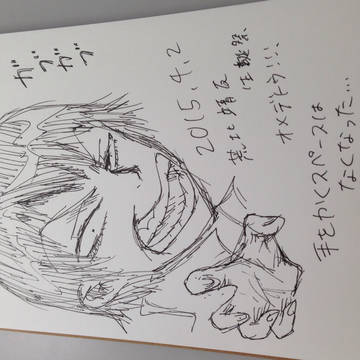 ガブガブ
2015.4.2
荒北靖友
生誕祭
オメデトウ!!!
手をかくスペースは
なくなった…